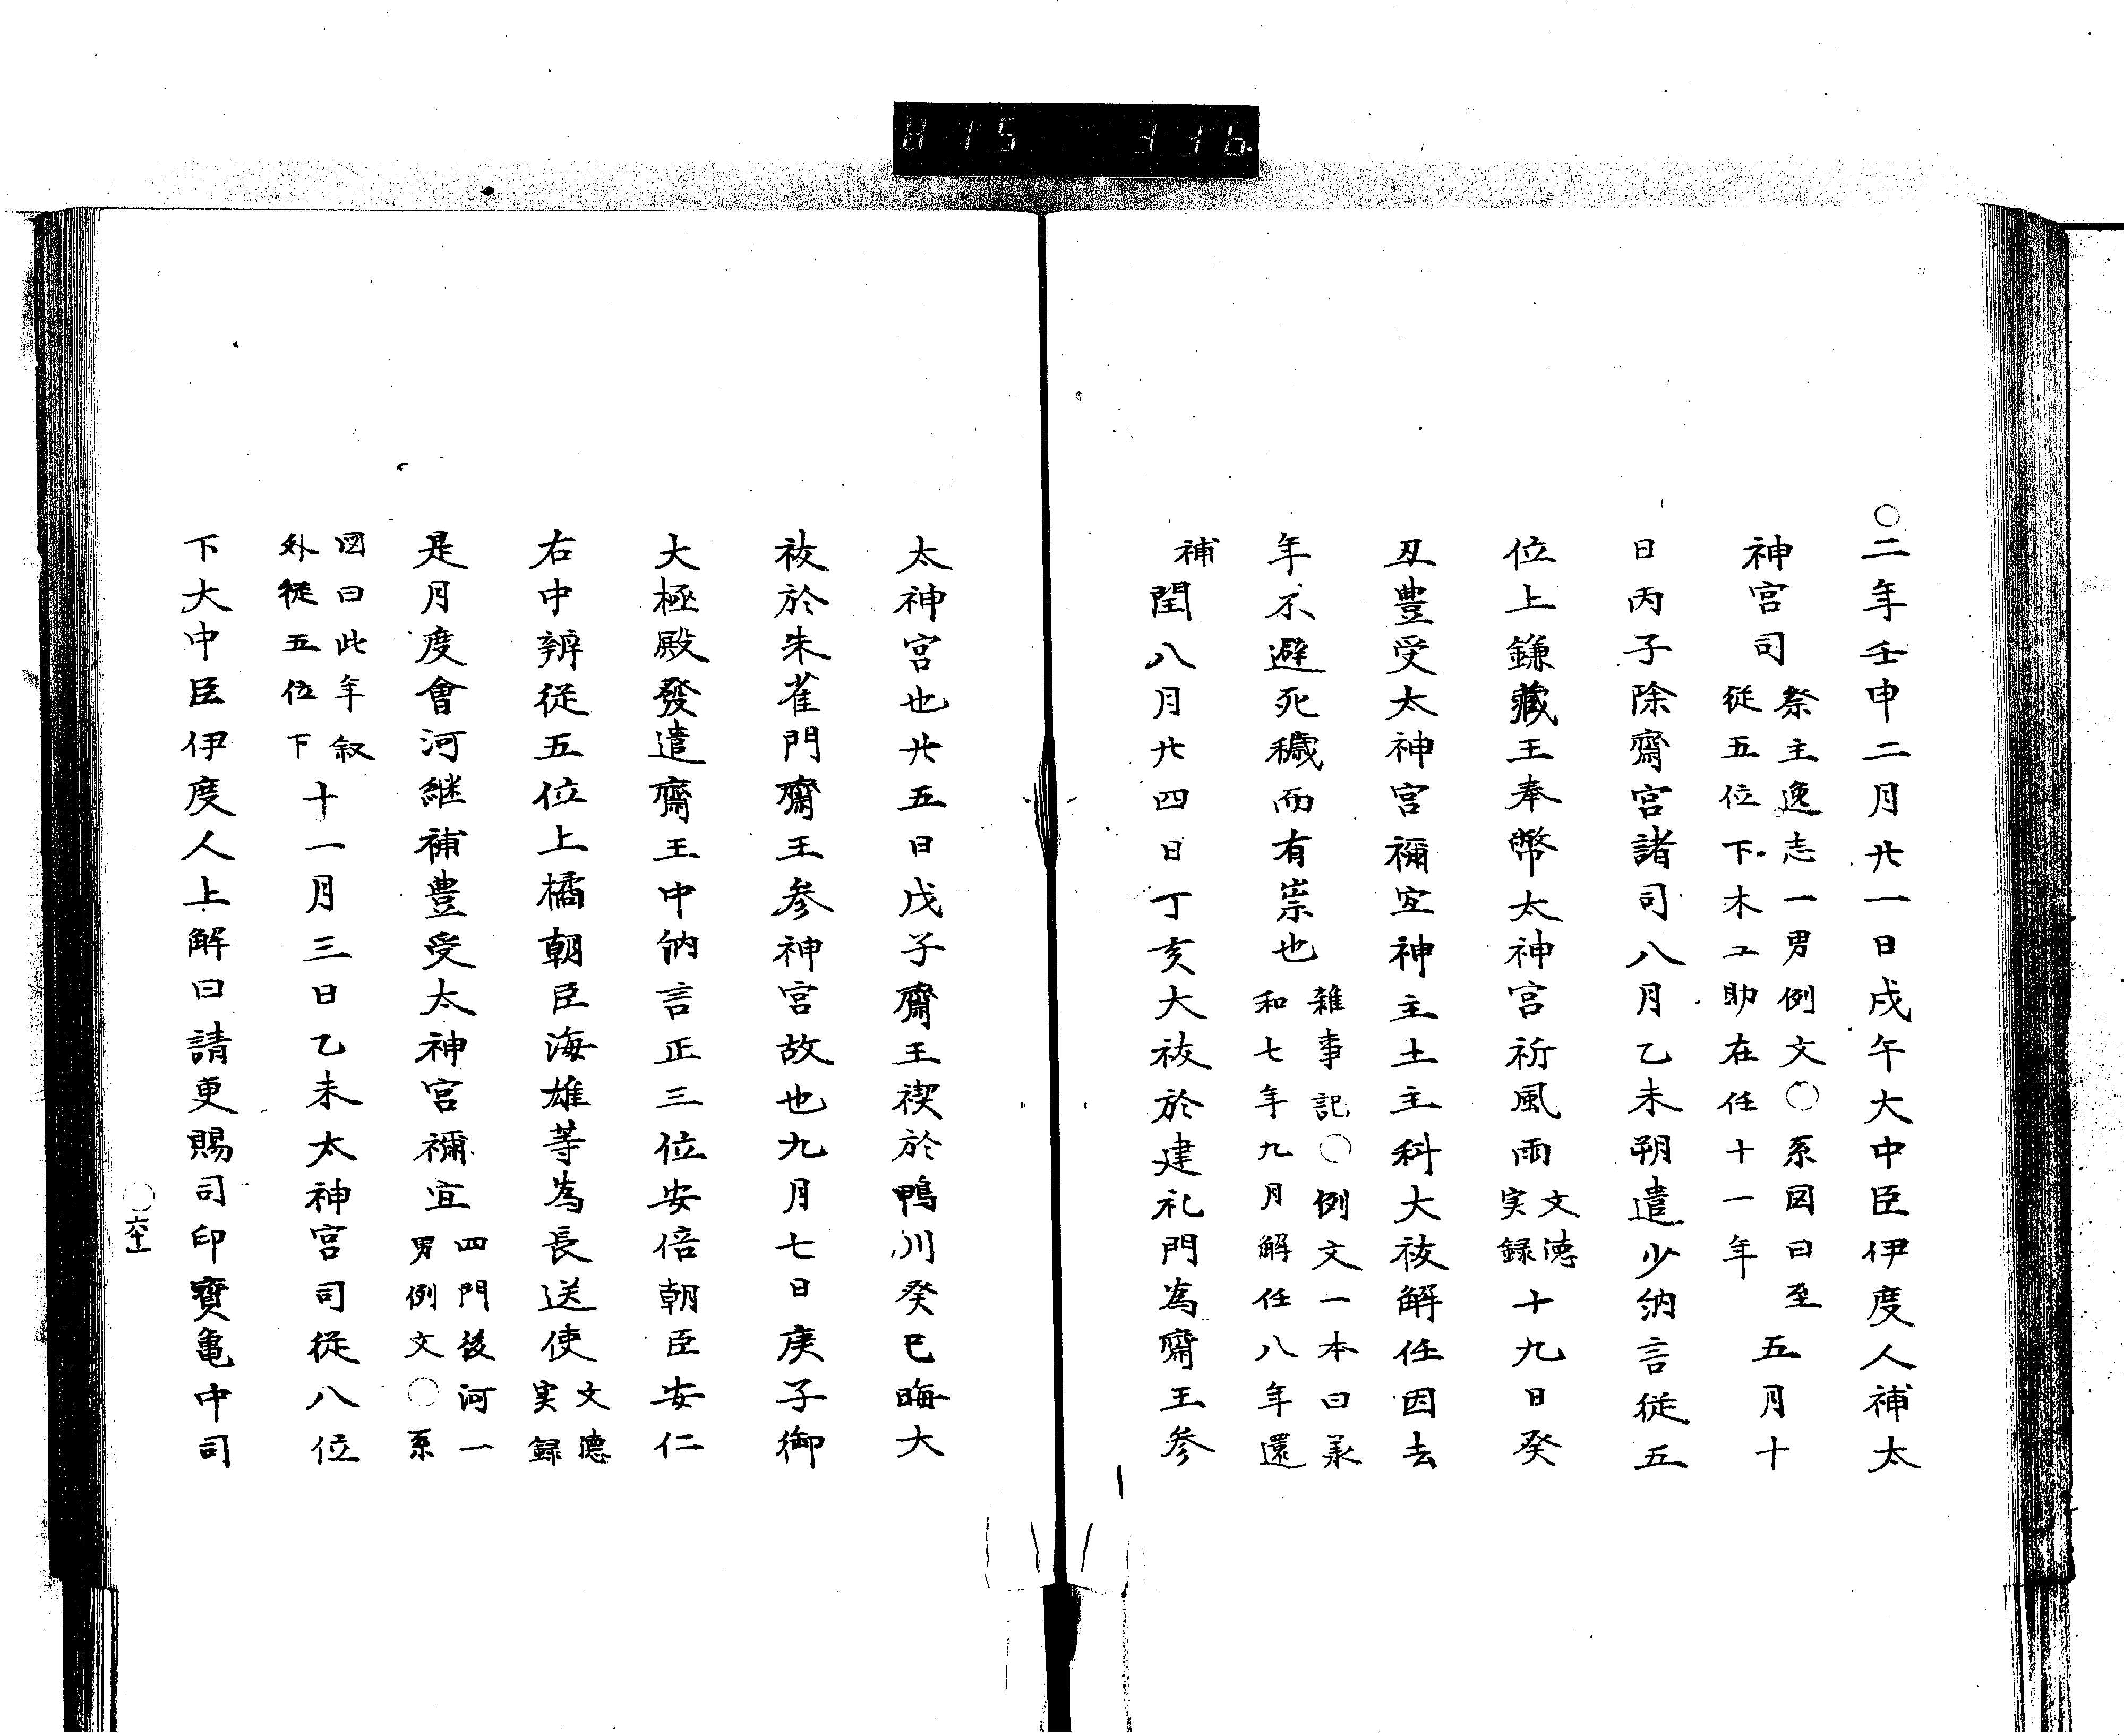 815 116.
〇二年壬申二月廿一日戌午大中臣伊度人補太
神宮司 祭主逸志一男例文〇系図曰至
従五位下木工助在任十一年 五月十
日丙子除齋宮諸司八月乙未朔遣少納言従五
位上鎌藏王奉幣太神宮祈風雨 文徳
実録 十九日癸
丑豊受太神宮禰宜神主土主科大祓解任因去
年不避死穢而有崇也 雜事記〇例文一本曰承
和七年九月解任八年還
補 閏八月廿四日丁亥大祓於建礼門為齋王参
太神宮也廿五日戊子齋王禊於鴨川癸巳晦大
祓於朱雀門齋王参神宮故也九月七日庚子御
大極殿發遣齋王中納言正三位安倍朝臣安仁
右中辨従五位上橘朝臣海雄等為長送使 文徳
実録
是月度會河継補豊受太神宮禰宜 四門後河一
男例文〇系
図曰此年叙
外従五位下 十一月三日乙未太神宮司従八位
下大中臣伊度人上解曰請更賜司印寶亀中司
〇六十一